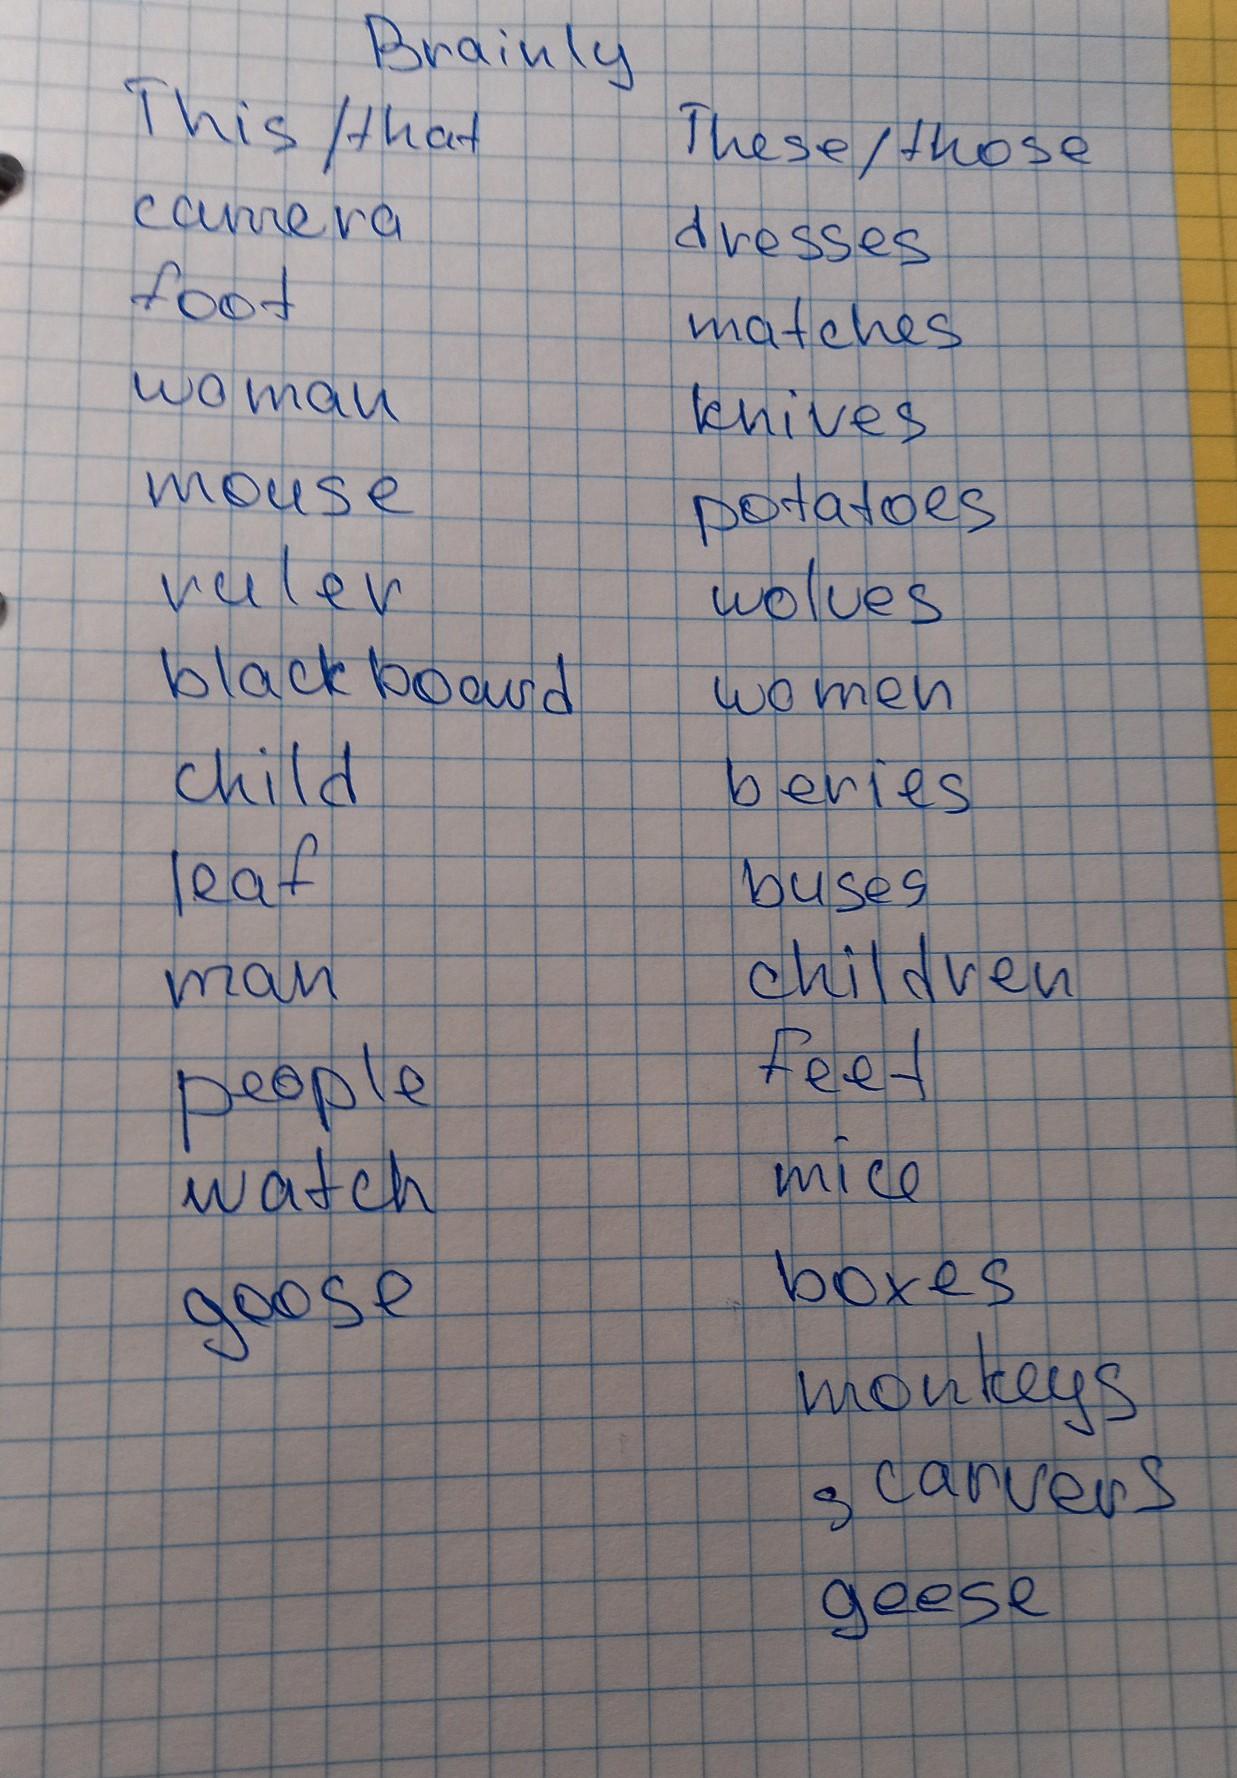 Brainly
This/that
camera
foot
woman
mouse
ruler
blackboard
child
leaf
man
people
watch
goose
These/those
dresses
matches
knives
potatoes
wolves
women
beries
buses
children
feet
mice
boxes
monkeys
scarvers
geese